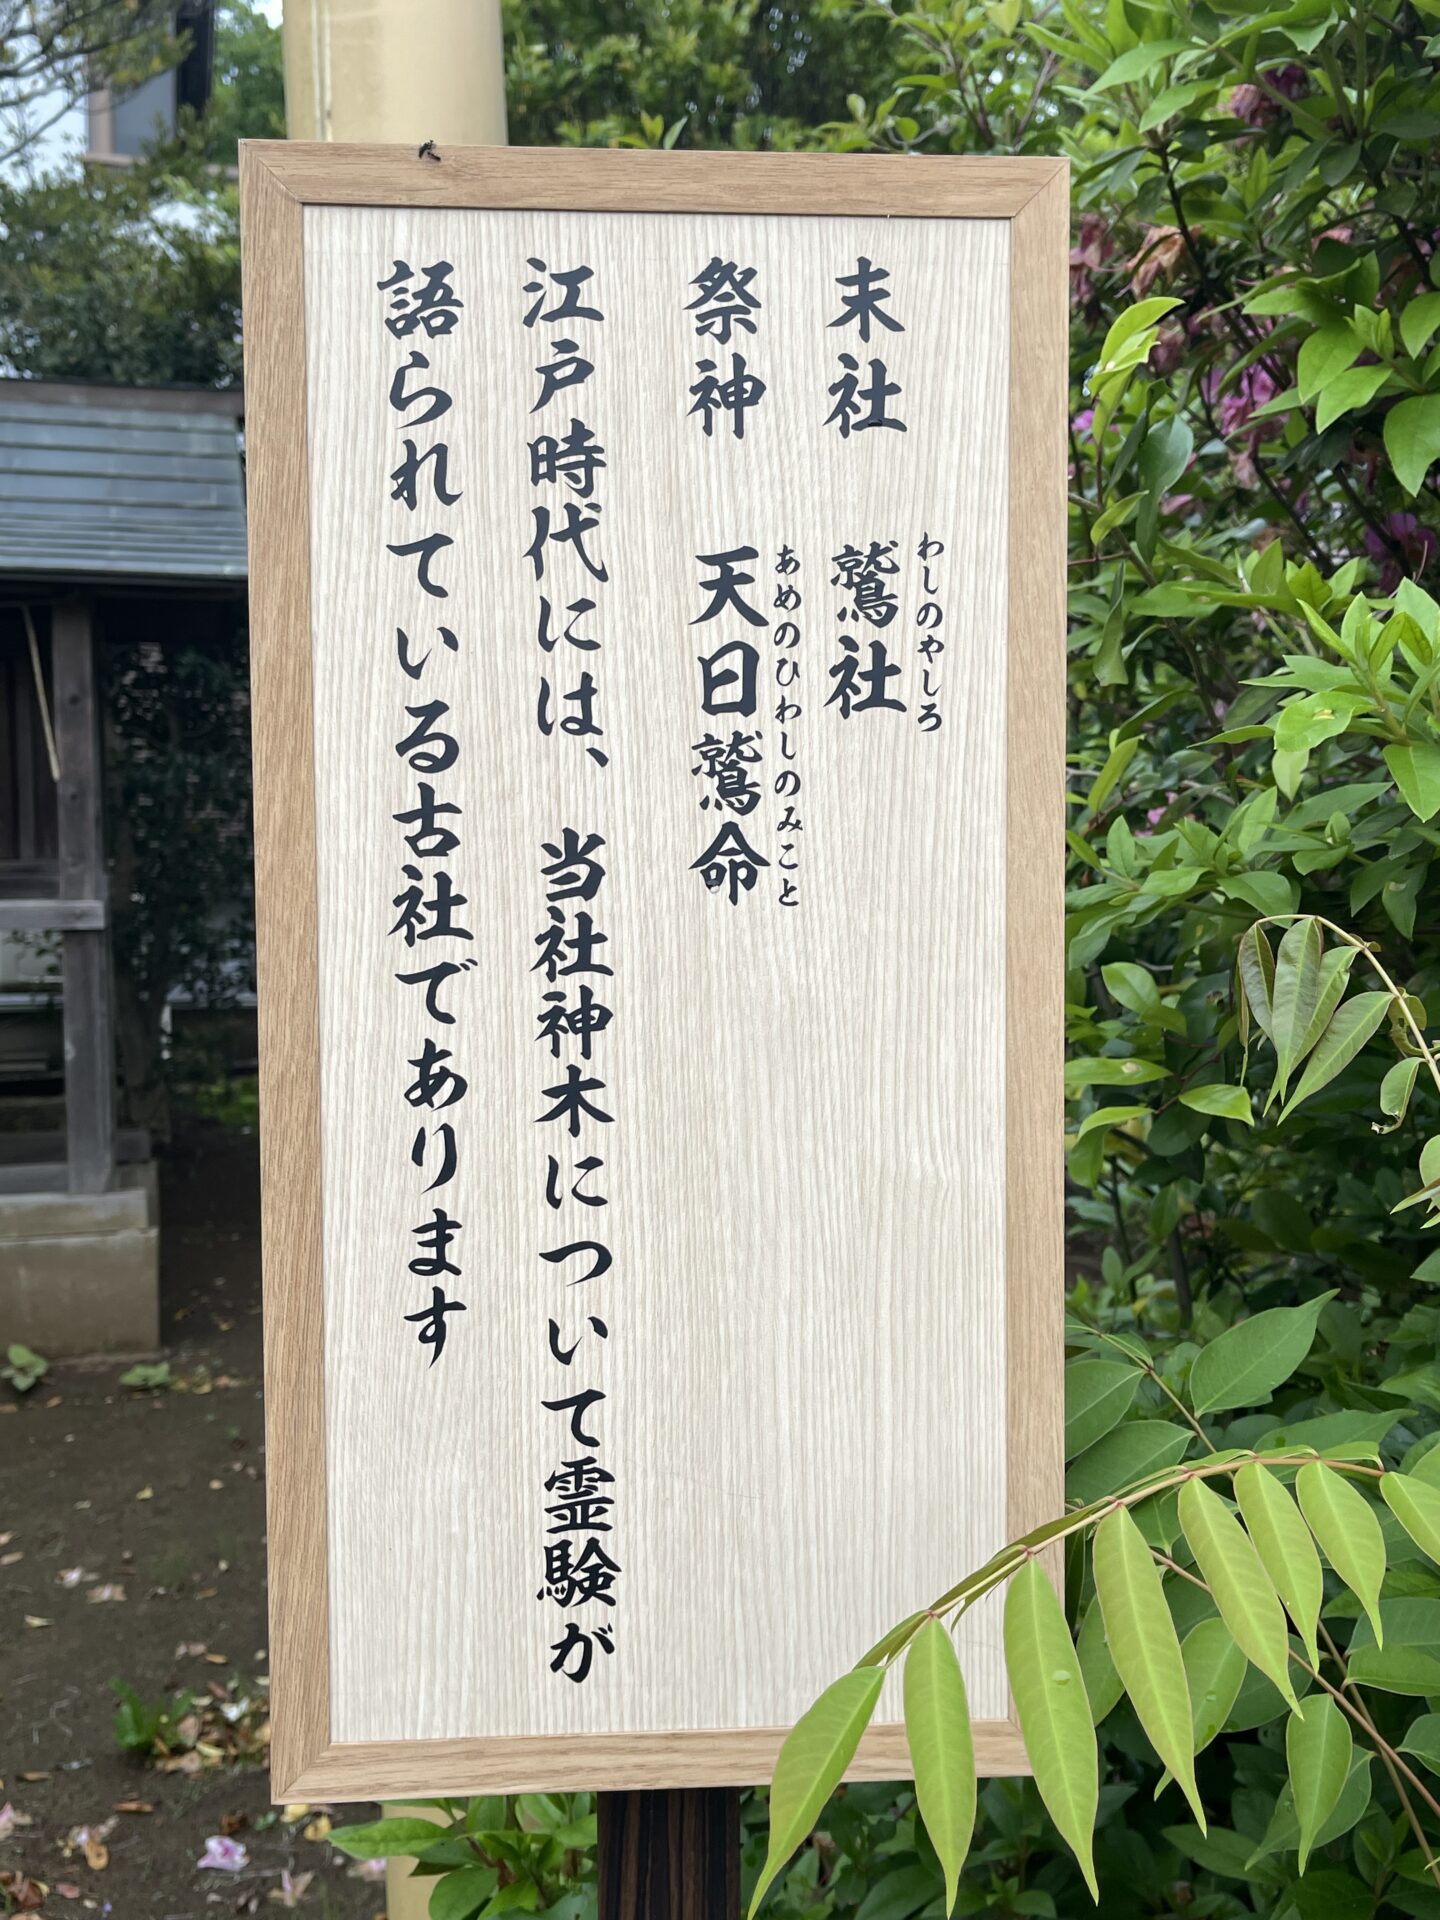 末社 鷲社
わしのやしろ
祭神 天日鷲命
あめのひわしのみこと
江戸時代には、当社神木について霊験が
語られている古社であります